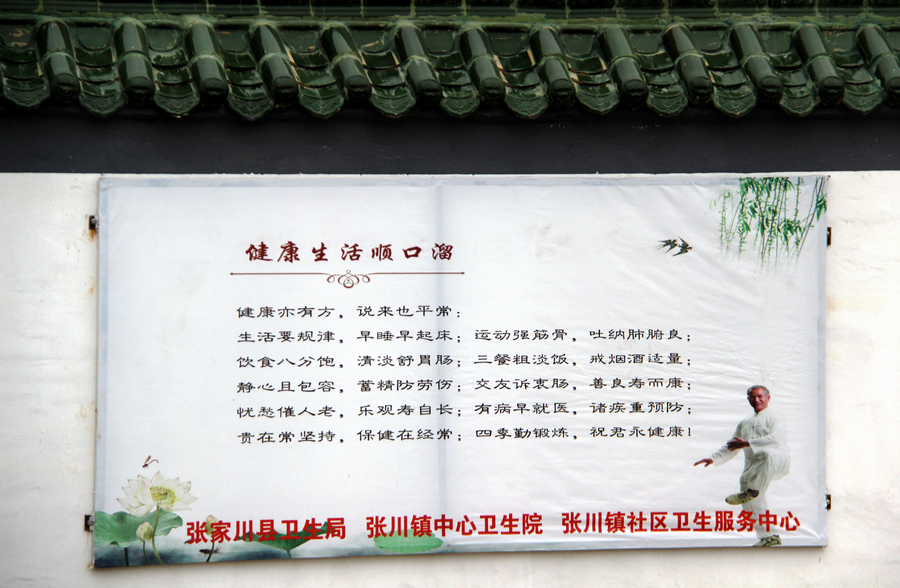 健康生活顺口溜
健康亦有方，说来也平常：
生活要规律，早睡早起床；运动强筋骨，吐纳肺腑良；
饮食八分饱，清淡舒胃肠；三餐粗淡饭，戒烟酒适量；
静心且包容，蓄精防劳伤；交友诉衷肠，善良寿而康；
忧愁催人老，乐观寿自长；有病早就医，诸疾重预防；
贵在常坚持，保健在经常；四季勤锻炼，祝君永健康！
张家川县卫生局 张川镇中心卫生院 张川镇社区卫生服务中心